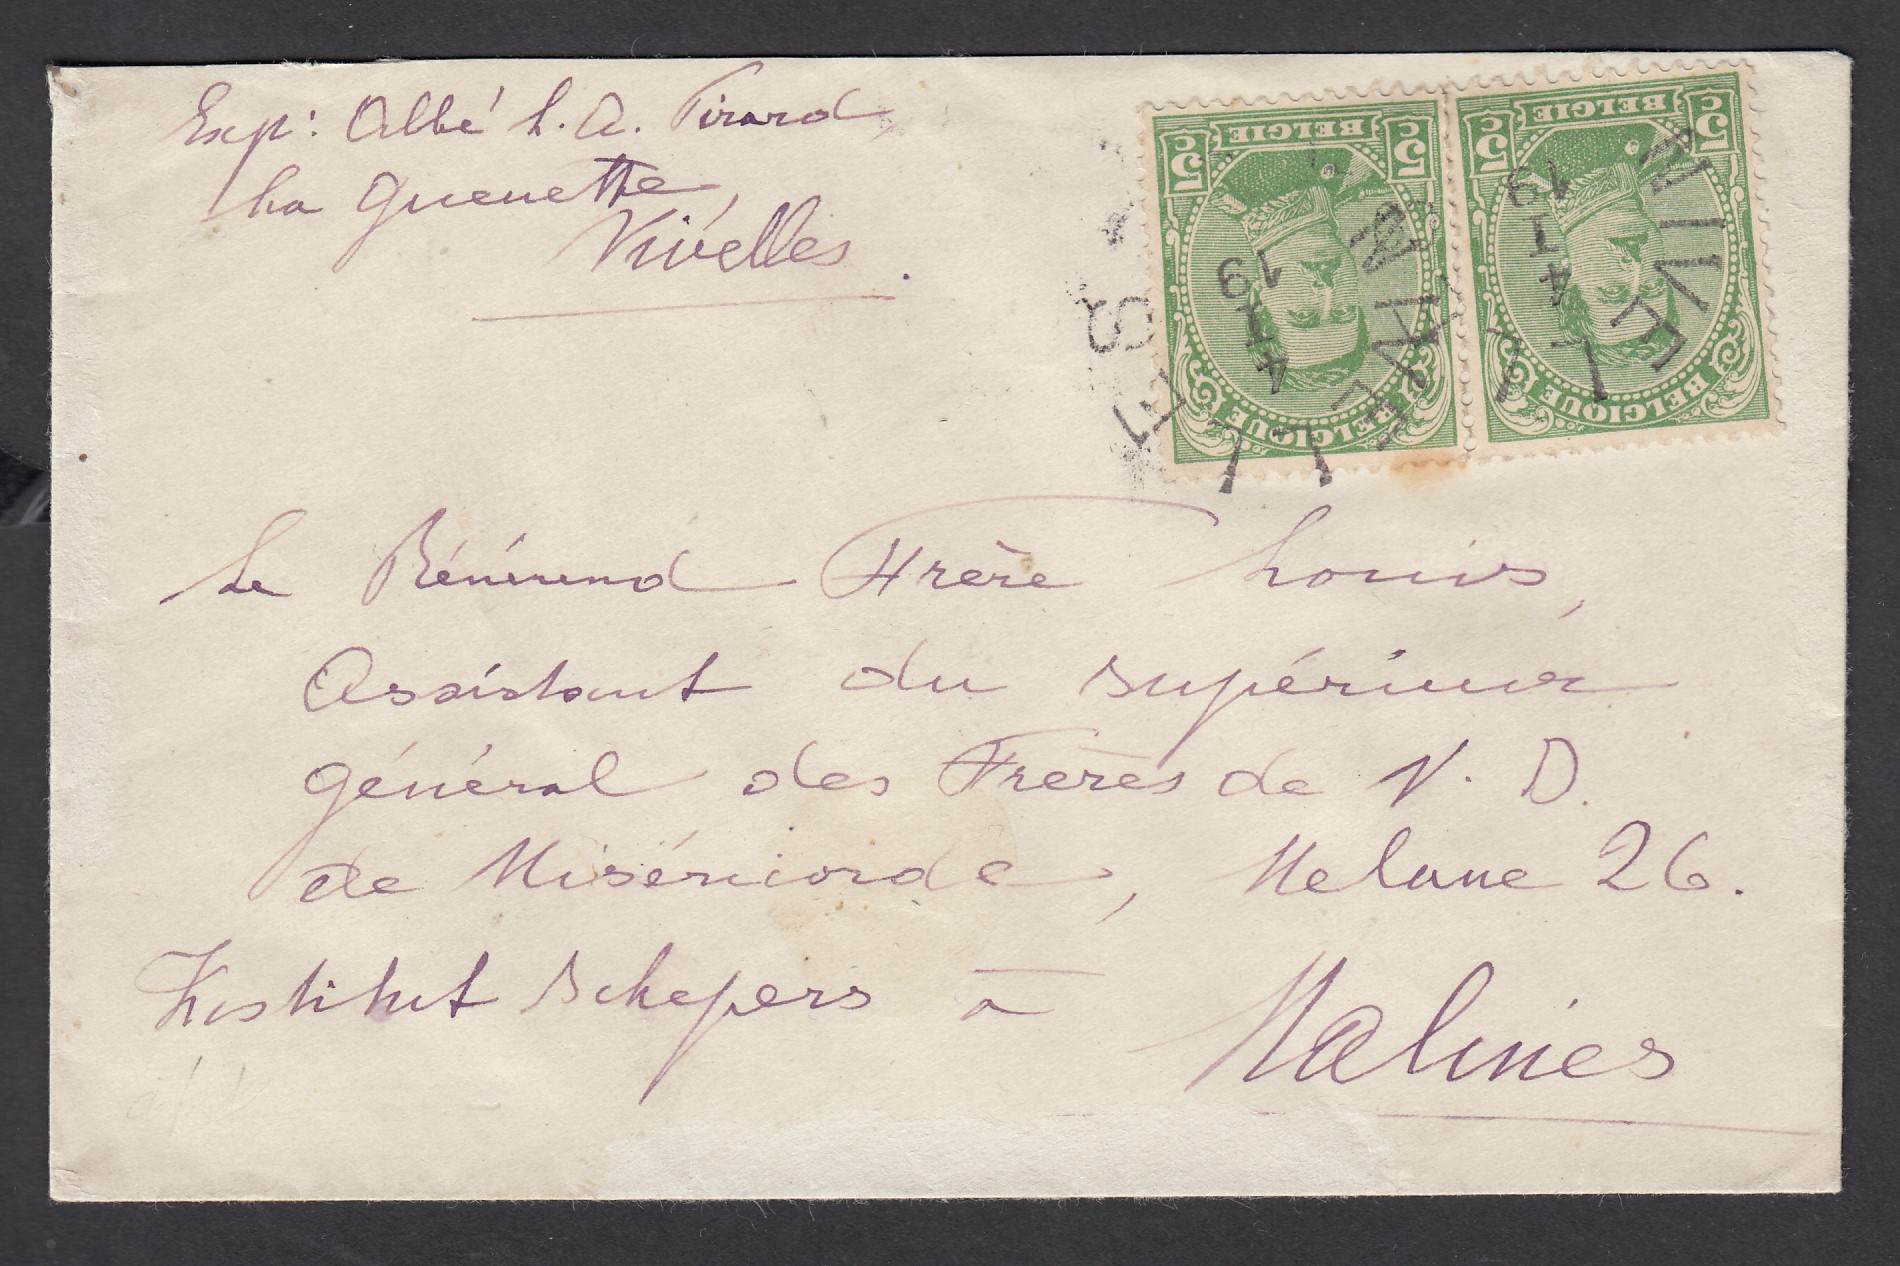 Exp: Abbé L. A. Tirard,
La Guenette,
Nivelles.
5c BELGIE 5c
BELGIQUE
5c BELGIE 5c
BELGIQUE
NIVELLES
4 I 19
NIVELL
4 I 19
Le Révérend Frère Louis,
Assistant du supérieur
général des Frères de N. D.
de Miséricorde, Melane 26.
Institut Schepers à
Malines